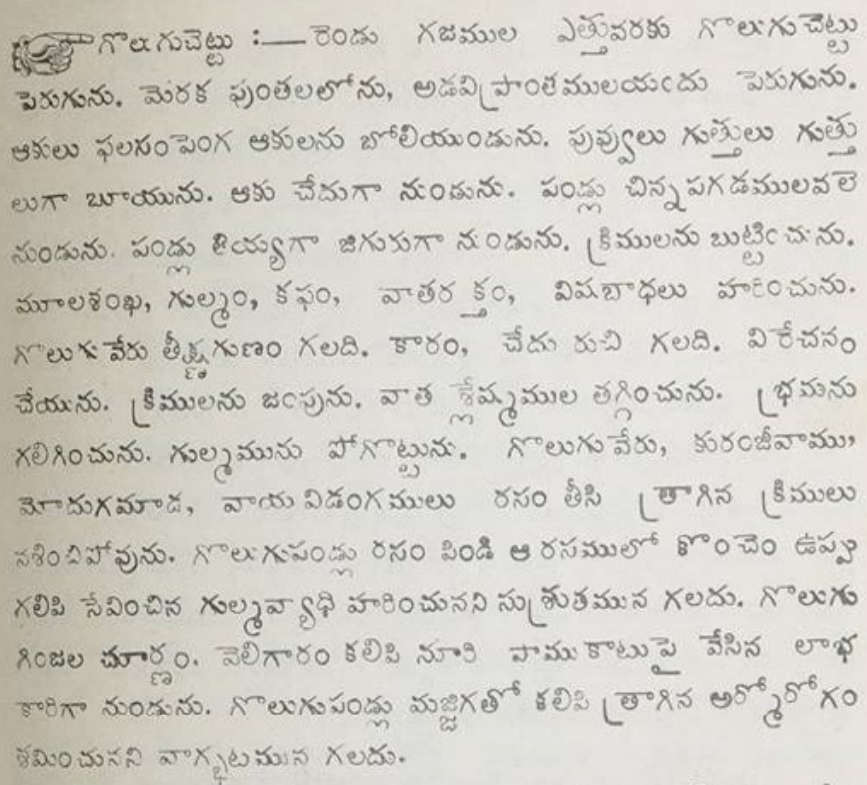 గొలుగుచెట్టు :— రెండు గజముల ఎత్తువరకు గొలుగుచెట్టు
పెరుగును. మెరక పుంతలలోను, అడవిప్రాంతములయందు పెరుగును.
ఆకులు ఫలసంపెంగ ఆకులను బోలియుండును. పువ్వులు గుత్తులు గుత్తు
లుగా బూయును. ఆకు చేదుగా నుండును. పండ్లు చిన్నపగడములవలె
నుండును. పండ్లు తియ్యగా జిగురుగా నుండును. క్రిములను బుట్టించును.
మూలశంఖ, గుల్మం, కఫం, వాతరక్తం, విషబాధలు హరించును.
గొలుగువేరు తీక్ష్ణగుణం గలది. కారం, చేదు రుచి గలది. విరేచనం
చేయును. క్రిములను జంపును. వాత శ్లేష్మముల తగ్గించును. భ్రమను
గలిగించును. గుల్మమును పోగొట్టును. గొలుగువేరు, కురంజీవాము,
మోదుగమాడ, వాయవిడంగములు రసం తీసి త్రాగిన క్రిములు
నశించిపోవును. గొలుగుపండ్లు రసం పిండి ఆ రసములో కొంచెం ఉప్పు
గలిపి సేవించిన గుల్మవ్యాధి హరించునని సుశ్రుతమున గలదు. గొలుగు
గింజల చూర్ణం. వెలిగారం కలిపి నూరి పాము కాటుపై వేసిన లాభ
కారిగా నుండును. గొలుగుపండ్లు మజ్జిగతో కలిపి త్రాగిన అర్శోరోగం
శమించునని వాగ్భటమున గలదు.